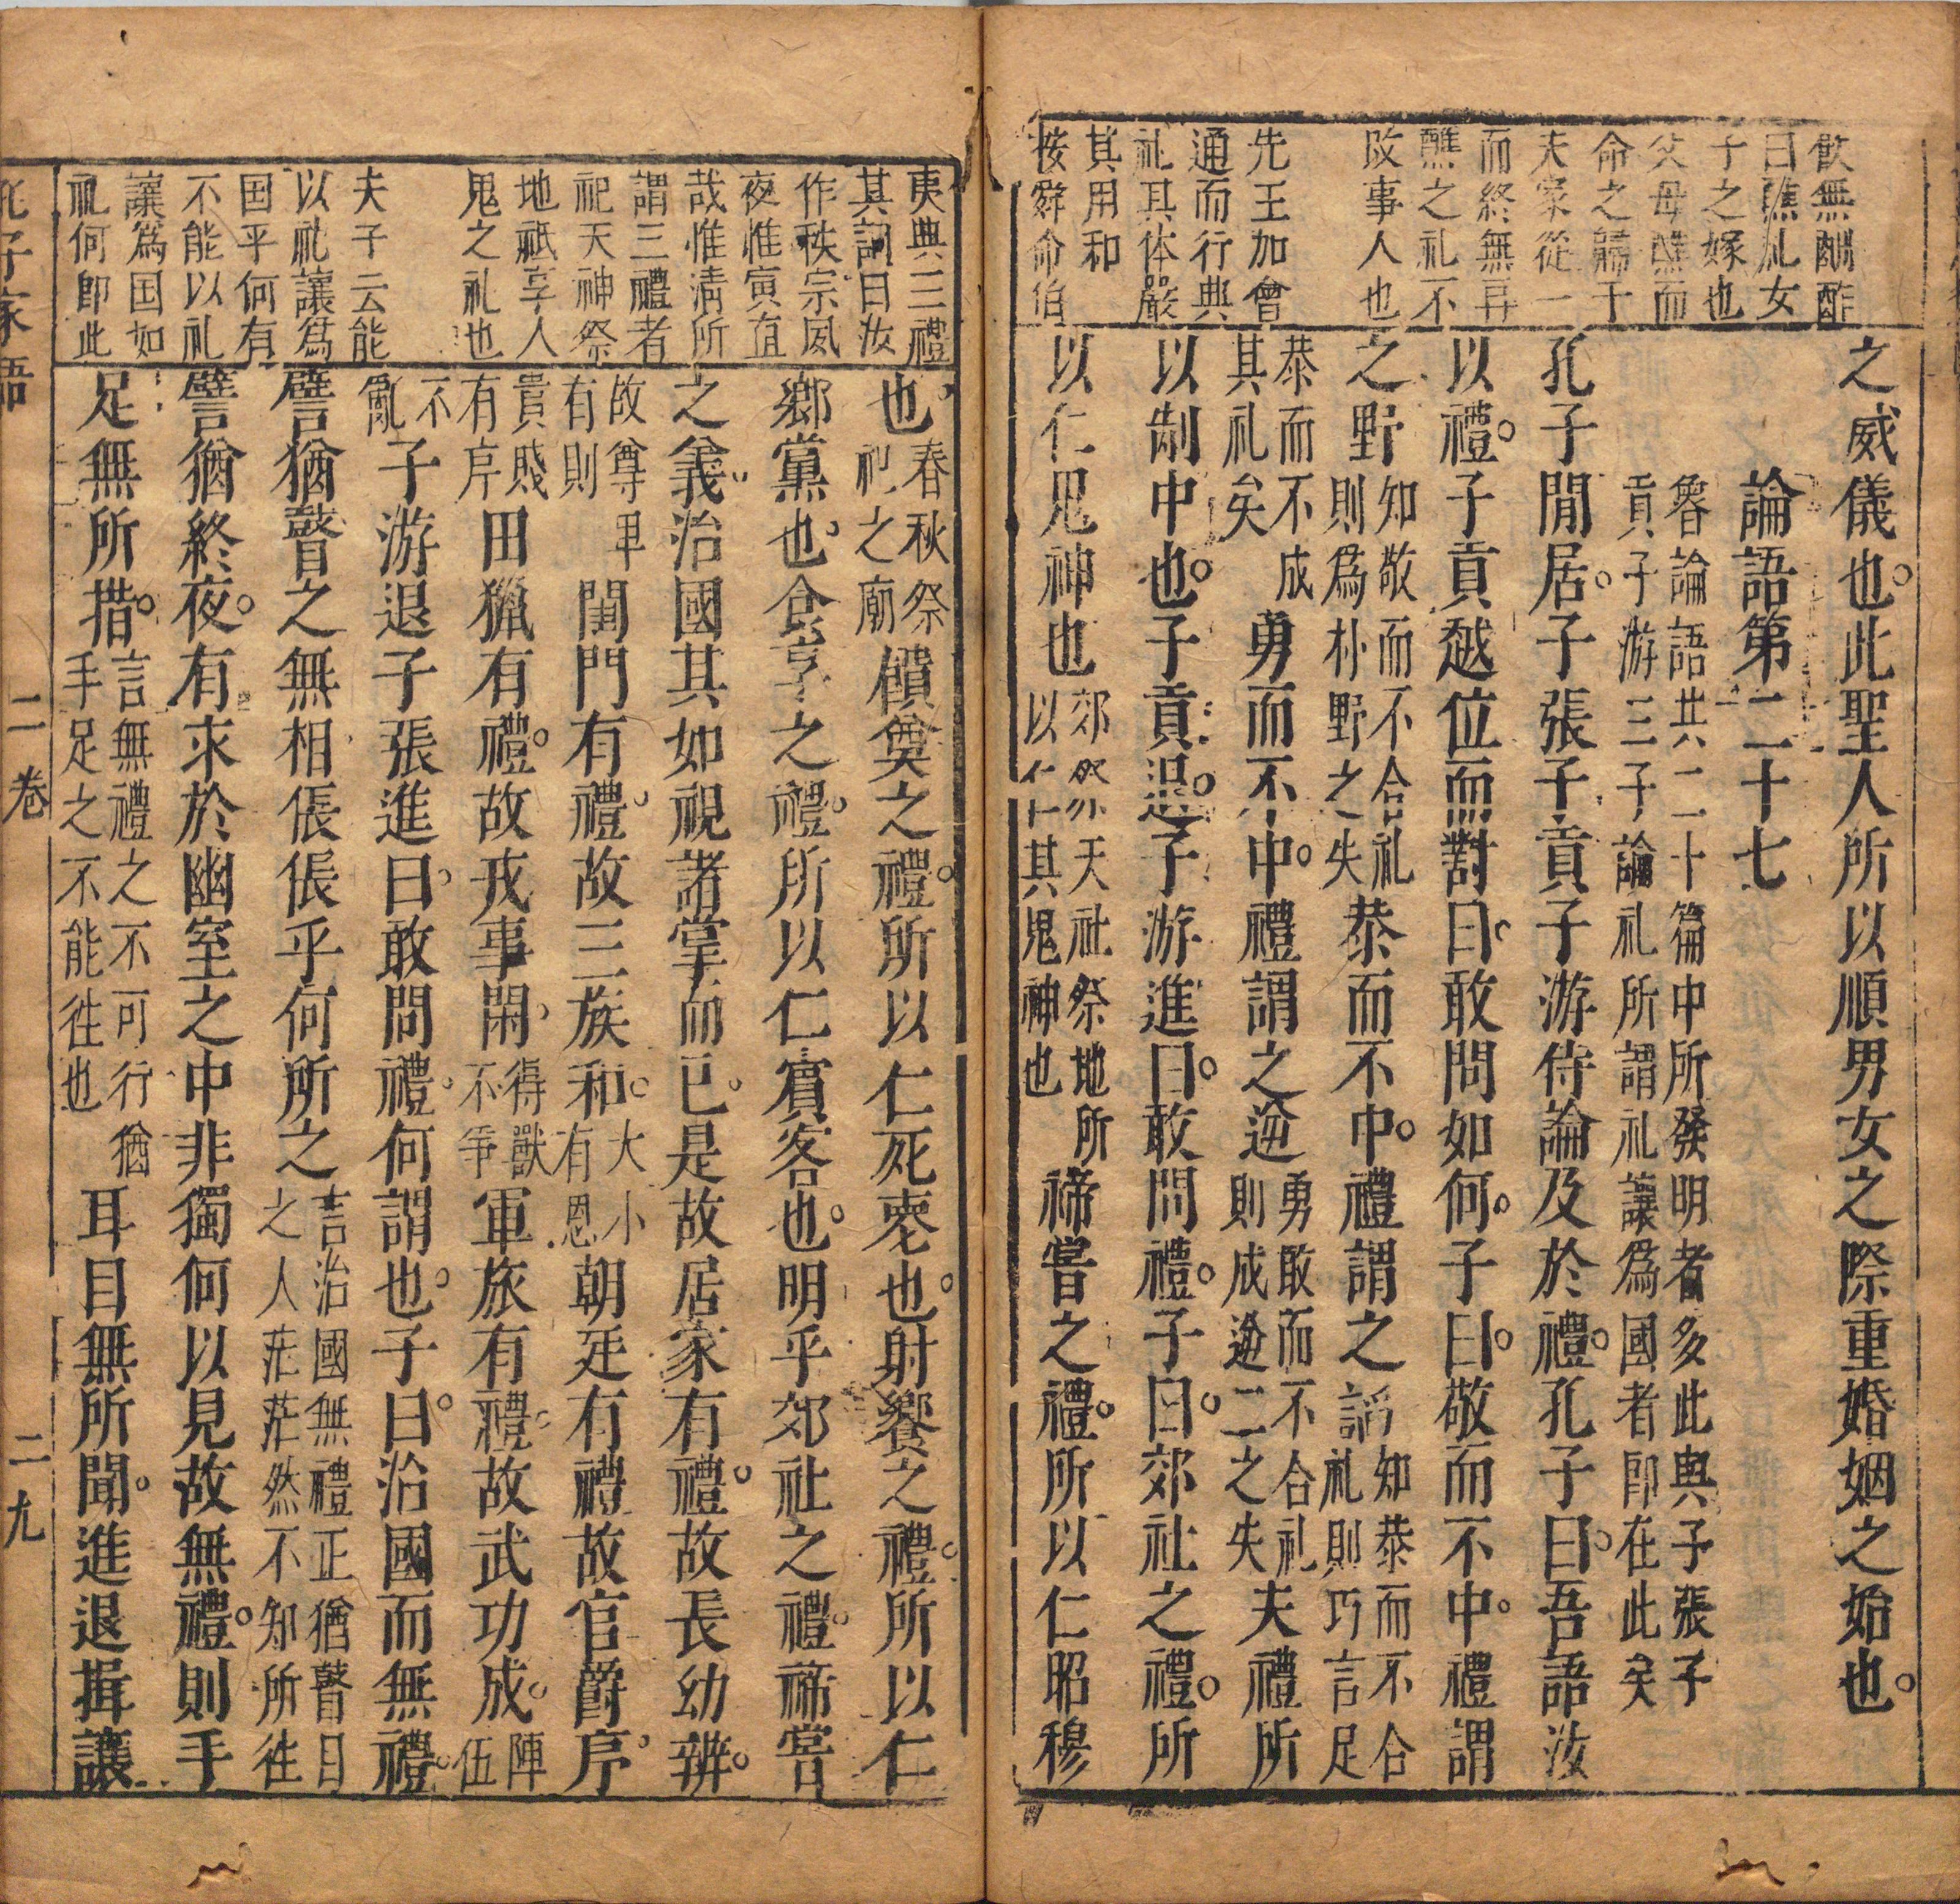 飲無酬酢
曰醮礼女
子之嫁也
父母醮而
命之歸于
夫家從一
而終無再
醮之礼不
改事人也
先王加會
通而行典
礼其体嚴
其用和
按舜命伯
之威儀也此聖人所以順男女之際重婚姻之始也
論語第二十七
魯論語共二十篇中所發明者多此與子張子
貢子游三子論礼所謂礼讓為國者即在此矣
孔子閒居子張子貢子游侍論及於禮孔子曰吾語汝
以禮子貢越位而對曰敢問如何子曰敬而不中禮謂
之野
知敬而不合礼
則為朴野之失
恭而不中禮謂之謟
知恭而不合
礼則巧言足
恭而不成
其礼矣
勇而不中禮謂之逆
勇敢而不合礼
則成逆二之失
夫禮所
以制中也子貢退子游進曰敢問禮子曰郊社之禮所
以仁鬼神也
郊祭天社祭地所
以仁其鬼神也
禘嘗之禮所以仁昭穆
夷典三禮
其詞曰汝
作秩宗夙
夜惟寅直
哉惟清所
謂三禮者
祀天神祭
地祇享人
鬼之礼也
夫子云能
以礼讓為
国乎何有
不能以礼
讓為国如
礼何即此
也
春秋祭
祀之廟
饋奠之禮所以仁死喪也射饗之禮所以仁
鄉黨也食享之禮所以仁賓客也明乎郊社之禮禘嘗
之義治國其如視諸掌而已是故居家有禮故長幼辨
故尊卑
有則
閨門有禮故三族和
大小
有恩
朝廷有禮故官爵序
貴賤
有序
田獵有禮故戎事閑
得獸
不爭
軍旅有禮故武功成
陣伍
不
亂
子游退子張進曰敢問禮何謂也子曰治國而無禮
譬猶瞽之無相倀倀乎何所之
言治國無禮正猶瞽目
之人茫茫然不知所往
譬猶終夜有求於幽室之中非獨何以見故無禮則手
足無所措
言無禮之不可行猶
手足之不能往也
耳目無所聞進退揖讓
孔子家語
二卷
二九